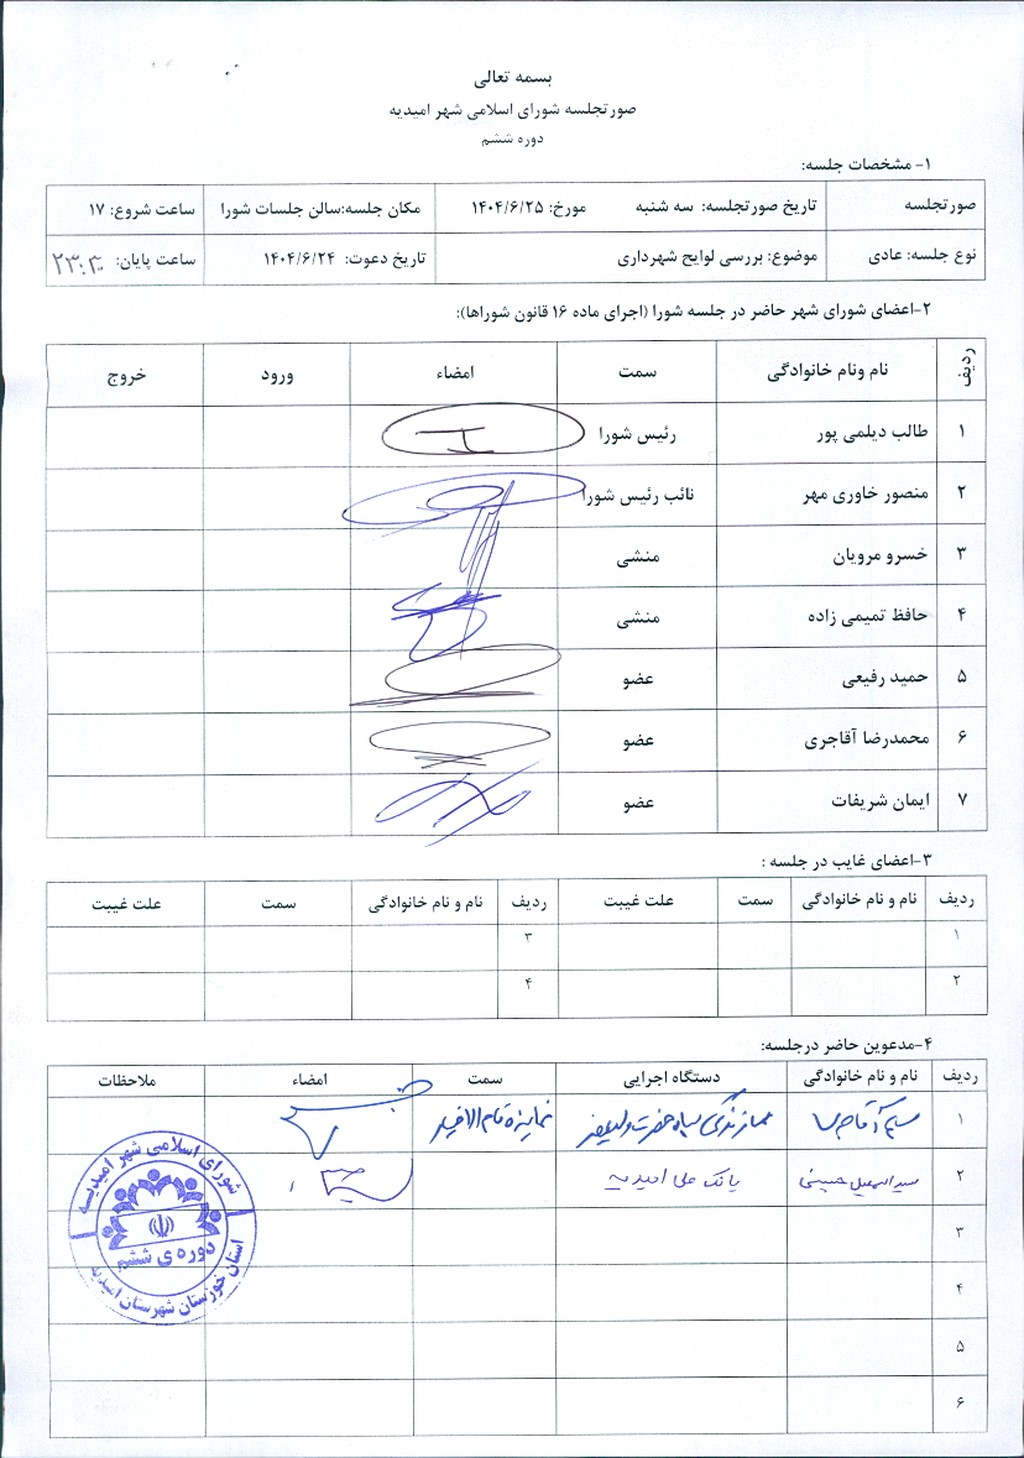 بسمه تعالی
صورتجلسه شورای اسلامی شهر امیدیه
دوره ششم
۱- مشخصات جلسه:
صورتجلسه تاریخ صورتجلسه: سه شنبه مورخ: ۱۴۰۴/۶/۲۵ مکان جلسه:سالن جلسات شورا ساعت شروع: ۱۷
نوع جلسه: عادی موضوع: بررسی لوایح شهرداری تاریخ دعوت: ۱۴۰۴/۶/۲۴ ساعت پایان: ۲۳:۳۰
۲-اعضای شورای شهر حاضر در جلسه شورا (اجرای ماده ۱۶ قانون شوراها):
ردیف نام ونام خانوادگی سمت امضاء ورود خروج
۱ طالب دیلمی پور رئیس شورا
۲ منصور خاوری مهر نائب رئیس شورا
۳ خسرو مرویان منشی
۴ حافظ تمیمی زاده منشی
۵ حمید رفیعی عضو
۶ محمدرضا آقاجری عضو
۷ ایمان شریفات عضو
۳-اعضای غایب در جلسه :
ردیف نام و نام خانوادگی سمت علت غیبت ردیف نام و نام خانوادگی سمت علت غیبت
۱ ۳
۲ ۴
۴-مدعوین حاضر درجلسه:
ردیف نام و نام خانوادگی دستگاه اجرایی سمت امضاء ملاحظات
۱ سپاه حضرت ولیعصر نماینده
۲ سید اسمعیل حسینی بانک ملی امیدیه
۳
۴
۵
۶
شورای اسلامی شهر امیدیه
دوره ی ششم
استان خوزستان شهرستان امیدیه